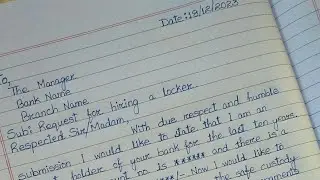 Date:19/12/2023
The Manager
Bank Name
Branch Name
Sub: Request for hiring a locker.
Respected Sir/Madam,
With due respect and humble
submission I would like to state that I am an
holder of your bank for the last ten years.
no is ****** and there is a
*****/- Now I would like to
the safe custody